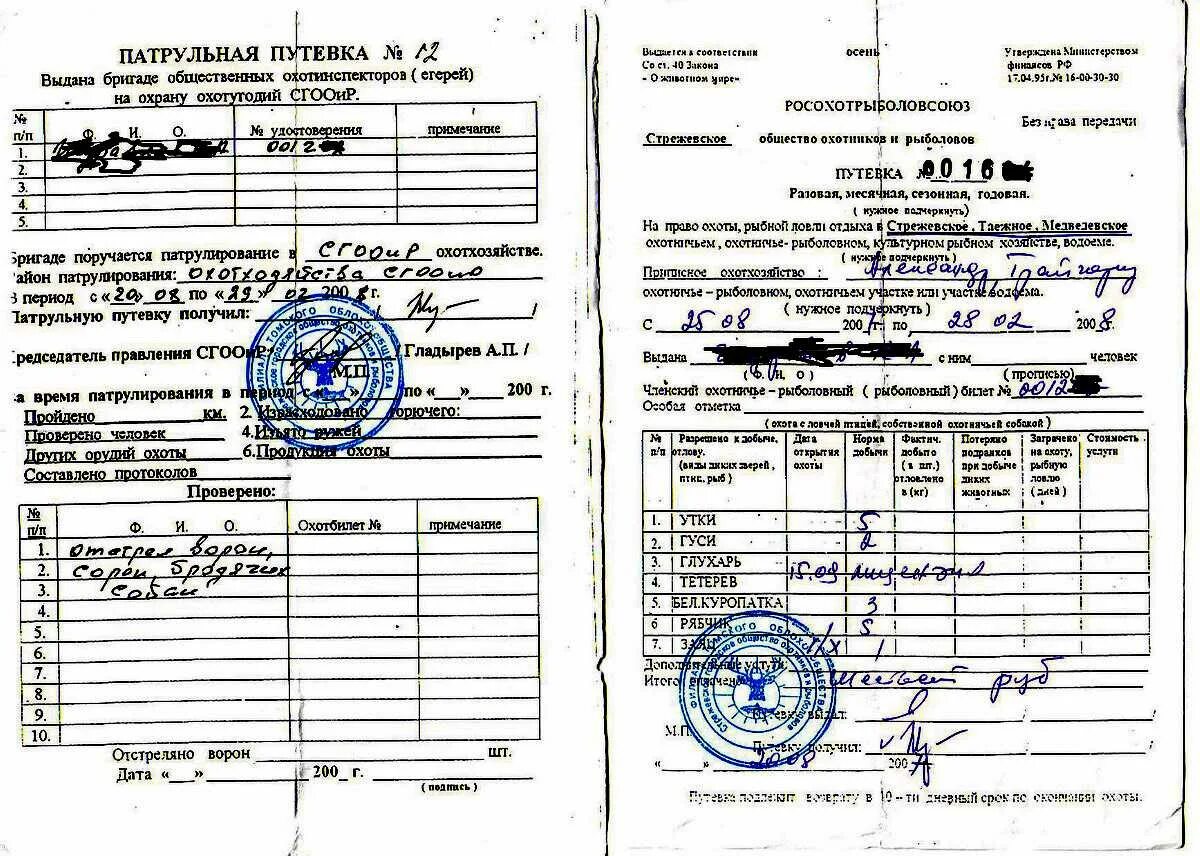 ПАТРУЛЬНАЯ ПУТЕВКА № 12
Выдана бригаде общественных охотинспекторов ( егерей)
на охрану охотугодий СГООиР.
№ п/п Ф. И. О. № удостоверения примечание
1. 0012
2.
3.
4.
5.
Бригаде поручается патрулирование в СГООиР охотхозяйстве.
айон патрулирования: охотхозяйства СГООиР
В период с «20» 08 по «29» 02 2008 г.
Патрульную путевку получил: / /
редседатель правления СГООиР: / Гладырев А.П. /
М.П.
а время патрулирования в период с « » по «__» 200 г.
Пройдено км. 2. Израсходовано горючего:
Проверено человек 4.Изъято ружей
Других орудий охоты 6.Продукция охоты
Составлено протоколов
Проверено:
№ п/п Ф. И. О. Охотбилет № примечание
1. отстрел ворон,
2. сорок, бродячих
3. собак
4.
5.
6.
7.
8.
9.
10.
Отстреляно ворон шт.
Дата «__» 200_ г.
( подпись )
Выдается в соответствии
Со ст. 40 Закона
« О животном мире»
осень
Утверждена Министерством
финансов РФ
17.04.95г.№ 16-00-30-30
РОСОХОТРЫБОЛОВСОЮЗ
Без права передачи
Стрежевское общество охотников и рыболовов
ПУТЕВКА № 0016
Разовая, месячная, сезонная, годовая.
( нужное подчеркнуть)
На право охоты, рыбной ловли отдыха в Стрежевское , Таежное , Медведевское
охотничьем , охотничье- рыболовном, культурном рыбном хозяйстве, водоеме.
( нужное подчеркнуть )
Приписное охотхозяйство :
охотничье – рыболовном, охотничьем участке или участке водоема.
( нужное подчеркнуть )
С 25 08 2007г. по 28 02 2008.
Выдана с ним человек
( Ф. И. О ) ( прописью)
Членский охотничье – рыболовный ( рыболовный ) билет № 0012
Особая отметка
( охота с ловчей птицей, собственной охотничьей собакой )
№ п/п Разрешено к добыче, отлову. (виды диких зверей , птиц, рыб ) Дата открытия охоты Норма добычи Фактич. добыто ( в шт.) отловлено в (кг) Потеряно подранков при добыче диких животных Затрачено на охоту, рыбную ловлю ( дней ) Стоимость услуги
1. УТКИ 5
2. ГУСИ 2
3. ГЛУХАРЬ
15.09 лицензия
4. ТЕТЕРЕВ
5. БЕЛ.КУРОПАТКА 3
6 РЯБЧИК 5
7. ЗАЯЦ 1
Дополнительные услуги:
Итого оплачено руб
Путевку выдал: / /
М.П.
Путевку получил: / /
« » 2008 200 г
Путевка подлежит возврату в 10 – ти дневный срок по окончании охоты.
ФИЛИАЛ ТОМСКОГО ОБЛОХОТОБЩЕСТВА
Стрежевское городское общество охотников и рыболовов